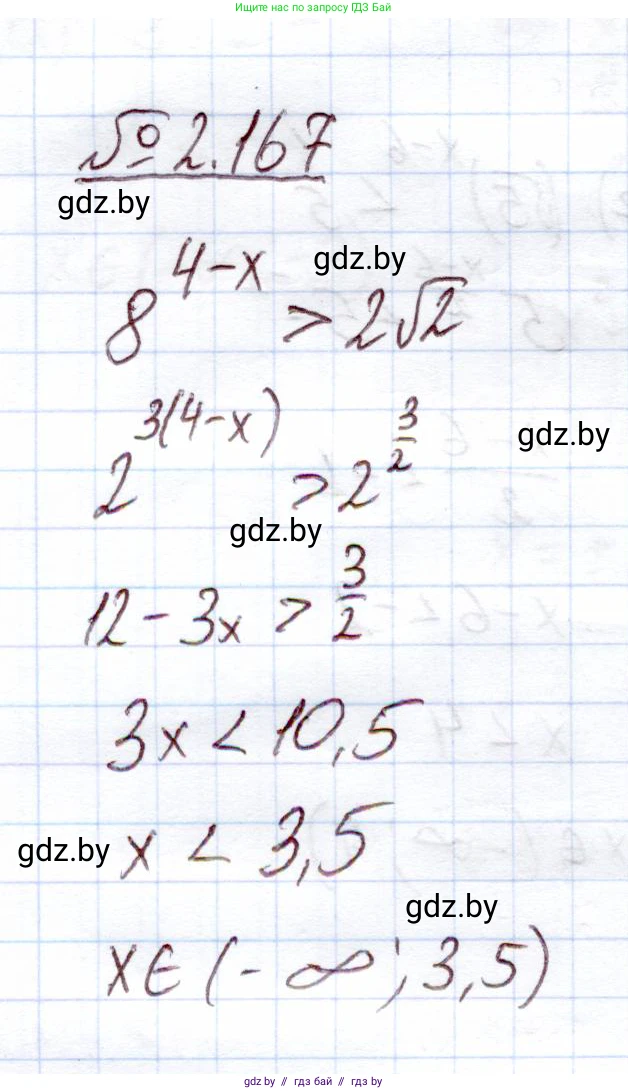 Ищите нас по запросу ГДЗ Бай
№ 2.167
gdz.by
gdz.by
8^{4-x} > 2√2
2^{3(4-x)} > 2^{3/2}
gdz.by
gdz.by
12 - 3x > 3/2
3x < 10,5
x < 3,5
gdz.by
gdz.by
x∈(-∞; 3,5)
gdz.by // гдз бай // гдз by